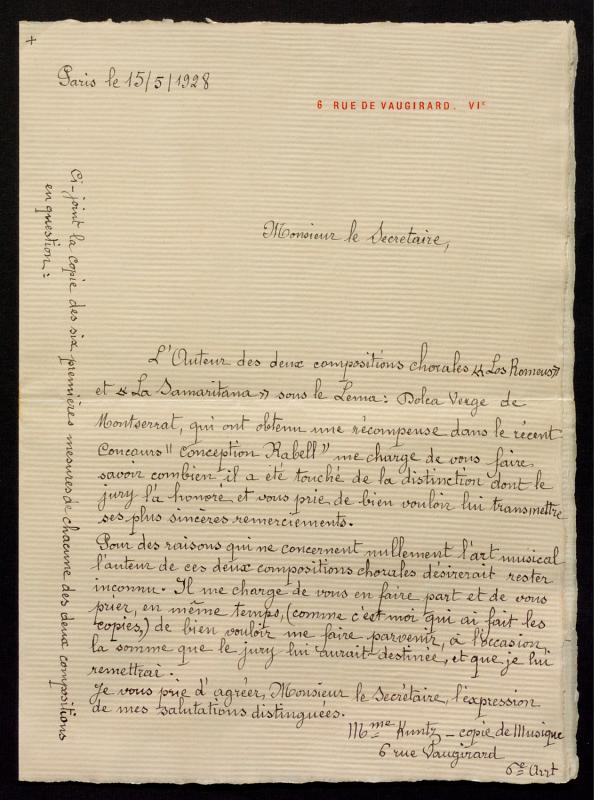 +
Paris le 15/5/1928
6 RUE DE VAUGIRARD. VIᵉ
Monsieur le Secretaire,
L'Auteur des deux compositions chorales « Los Romeus »
et « La Samaritana » sous le Lema: Dolca Verge de
Montserrat, qui ont obtenu une récompense dans le récent
Concours " Conception Rabell " me charge de vous faire
savoir combien il a été touché de la distinction dont le
jury l'a honoré et vous prie de bien vouloir lui transmettre
ses plus sincères remerciements.
Pour des raisons qui ne concernent nullement l'art musical
l'auteur de ces deux compositions chorales désirerait rester
inconnu. Il me charge de vous en faire part et de vous
prier, en même temps, (comme c'est moi qui ai fait les
copies,) de bien vouloir me faire parvenir, à l'occasion,
la somme que le jury lui aurait destinée, et que je lui
remettrai.
Je vous prie d'agréer, Monsieur le Secrétaire, l'expression
de mes salutations distinguées.
Mme Kuntz - copie de Musique
6 rue Vaugirard
6e Arrt
Ci-joint la copie des six premières mesures de chacune des deux compositions
en question: